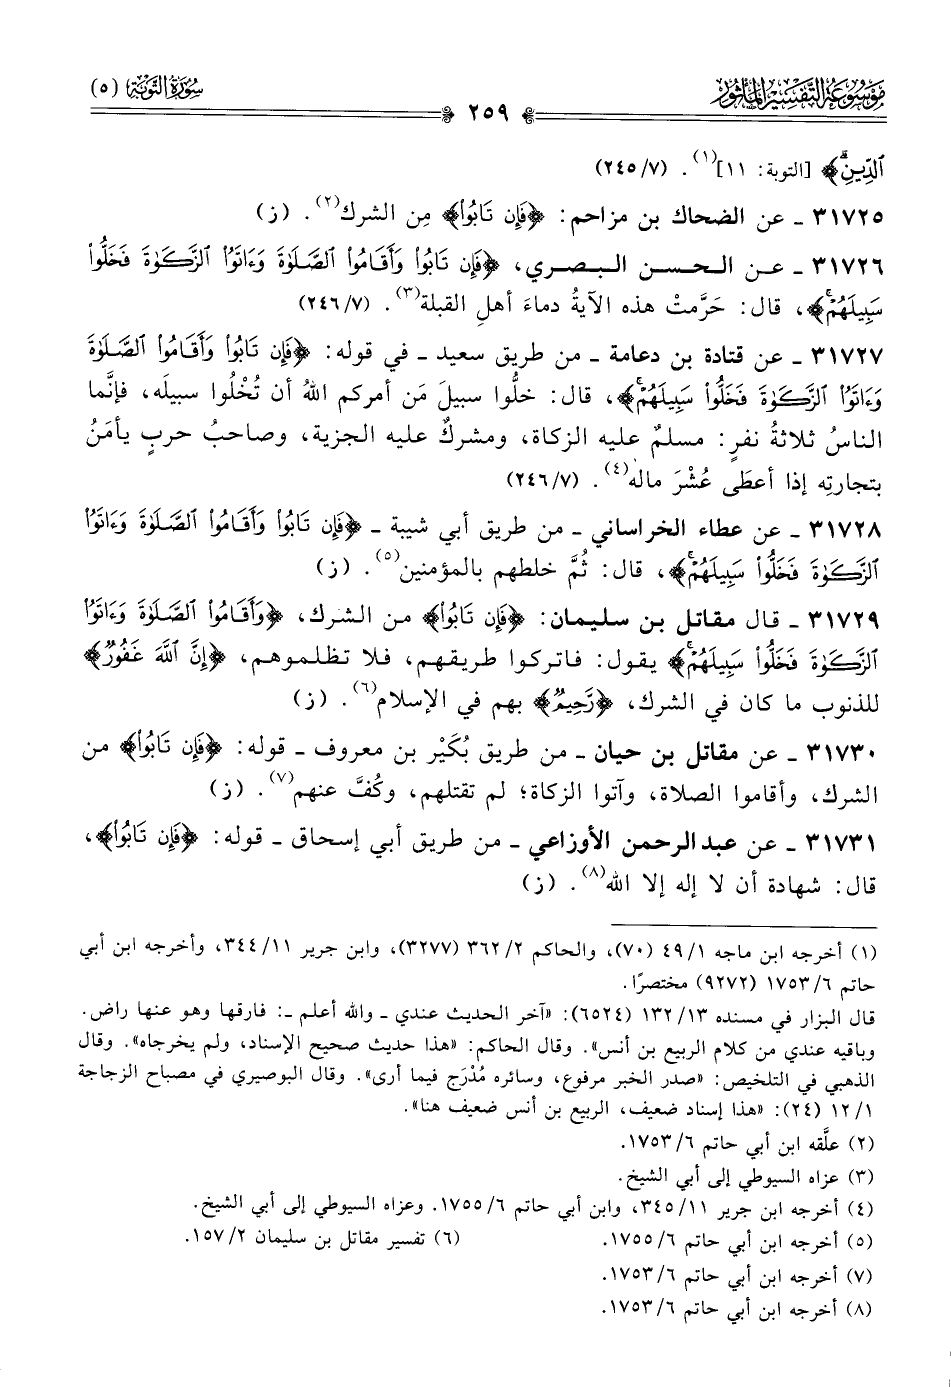 مَوْسُوعَةُ التَّفْسِيرِ المَأْثُورِ
سُورَةُ التَّوْبَةِ (٥)
٢٥٩
ٱلدِّينِۗ﴾ [التوبة: ١١](١). (٧/ ٢٤٥)
٣١٧٢٥ ـ عن الضحاك بن مزاحم: ﴿فَإِن تَابُواْ﴾ مِن الشرك(٢). (ز)
٣١٧٢٦ ـ عن الحسن البصري، ﴿فَإِن تَابُواْ وَأَقَامُواْ ٱلصَّلَوٰةَ وَءَاتَوُاْ ٱلزَّكَوٰةَ فَخَلُّواْ
سَبِيلَهُمْۚ﴾، قال: حَرَّمتْ هذه الآيةُ دماءَ أهلِ القبلة(٣). (٧/ ٢٤٦)
٣١٧٢٧ ـ عن قتادة بن دعامة ـ من طريق سعيد ـ في قوله: ﴿فَإِن تَابُواْ وَأَقَامُواْ ٱلصَّلَوٰةَ
وَءَاتَوُاْ ٱلزَّكَوٰةَ فَخَلُّواْ سَبِيلَهُمْۚ﴾، قال: خلُّوا سبيلَ مَن أمركم اللهُ أن تُخْلُوا سبيلَه، فإنَّما
الناسُ ثلاثةُ نفرٍ: مسلمٌ عليه الزكاة، ومشركٌ عليه الجزية، وصاحبُ حربٍ يأمَنُ
بتجارتِه إذا أعطَى عُشْرَ مالِه(٤). (٧/ ٢٤٦)
٣١٧٢٨ ـ عن عطاء الخراساني ـ من طريق أبي شيبة ـ ﴿فَإِن تَابُواْ وَأَقَامُواْ ٱلصَّلَوٰةَ وَءَاتَوُاْ
ٱلزَّكَوٰةَ فَخَلُّواْ سَبِيلَهُمْۚ﴾، قال: ثُمَّ خلطهم بالمؤمنين(٥). (ز)
٣١٧٢٩ ـ قال مقاتل بن سليمان: ﴿فَإِن تَابُواْ﴾ من الشرك، ﴿وَأَقَامُواْ ٱلصَّلَوٰةَ وَءَاتَوُاْ
ٱلزَّكَوٰةَ فَخَلُّواْ سَبِيلَهُمْۚ﴾ يقول: فاتركوا طريقهم، فلا تظلموهم، ﴿إِنَّ ٱللَّهَ غَفُورٌ﴾
للذنوب ما كان في الشرك، ﴿رَّحِيمٌ﴾ بهم في الإسلام(٦). (ز)
٣١٧٣٠ ـ عن مقاتل بن حيان ـ من طريق بُكَيْر بن معروف ـ قوله: ﴿فَإِن تَابُواْ﴾ من
الشرك، وأقاموا الصلاة، وآتوا الزكاة؛ لم تقتلهم، وكُفَّ عنهم(٧). (ز)
٣١٧٣١ ـ عن عبدالرحمن الأوزاعي ـ من طريق أبي إسحاق ـ قوله: ﴿فَإِن تَابُواْ﴾،
قال: شهادة أن لا إله إلا الله(٨). (ز)
(١) أخرجه ابن ماجه ١/ ٤٩ (٧٠)، والحاكم ٢/ ٣٦٢ (٣٢٧٧)، وابن جرير ١١/ ٣٤٤، وأخرجه ابن أبي
حاتم ٦/ ١٧٥٣ (٩٢٧٢) مختصرًا.
قال البزار في مسنده ١٣/ ١٣٢ (٦٥٢٤): «آخر الحديث عندي ـ والله أعلم ـ: فارقها وهو عنها راض.
وباقيه عندي من كلام الربيع بن أنس». وقال الحاكم: «هذا حديث صحيح الإسناد، ولم يخرجاه». وقال
الذهبي في التلخيص: «صدر الخبر مرفوع، وسائره مُدْرَج فيما أرى». وقال البوصيري في مصباح الزجاجة
١/ ١٢ (٢٤): «هذا إسناد ضعيف، الربيع بن أنس ضعيف هنا».
(٢) علَّقه ابن أبي حاتم ٦/ ١٧٥٣.
(٣) عزاه السيوطي إلى أبي الشيخ.
(٤) أخرجه ابن جرير ١١/ ٣٤٥، وابن أبي حاتم ٦/ ١٧٥٥. وعزاه السيوطي إلى أبي الشيخ.
(٥) أخرجه ابن أبي حاتم ٦/ ١٧٥٥. (٦) تفسير مقاتل بن سليمان ٢/ ١٥٧.
(٧) أخرجه ابن أبي حاتم ٦/ ١٧٥٣.
(٨) أخرجه ابن أبي حاتم ٦/ ١٧٥٣.